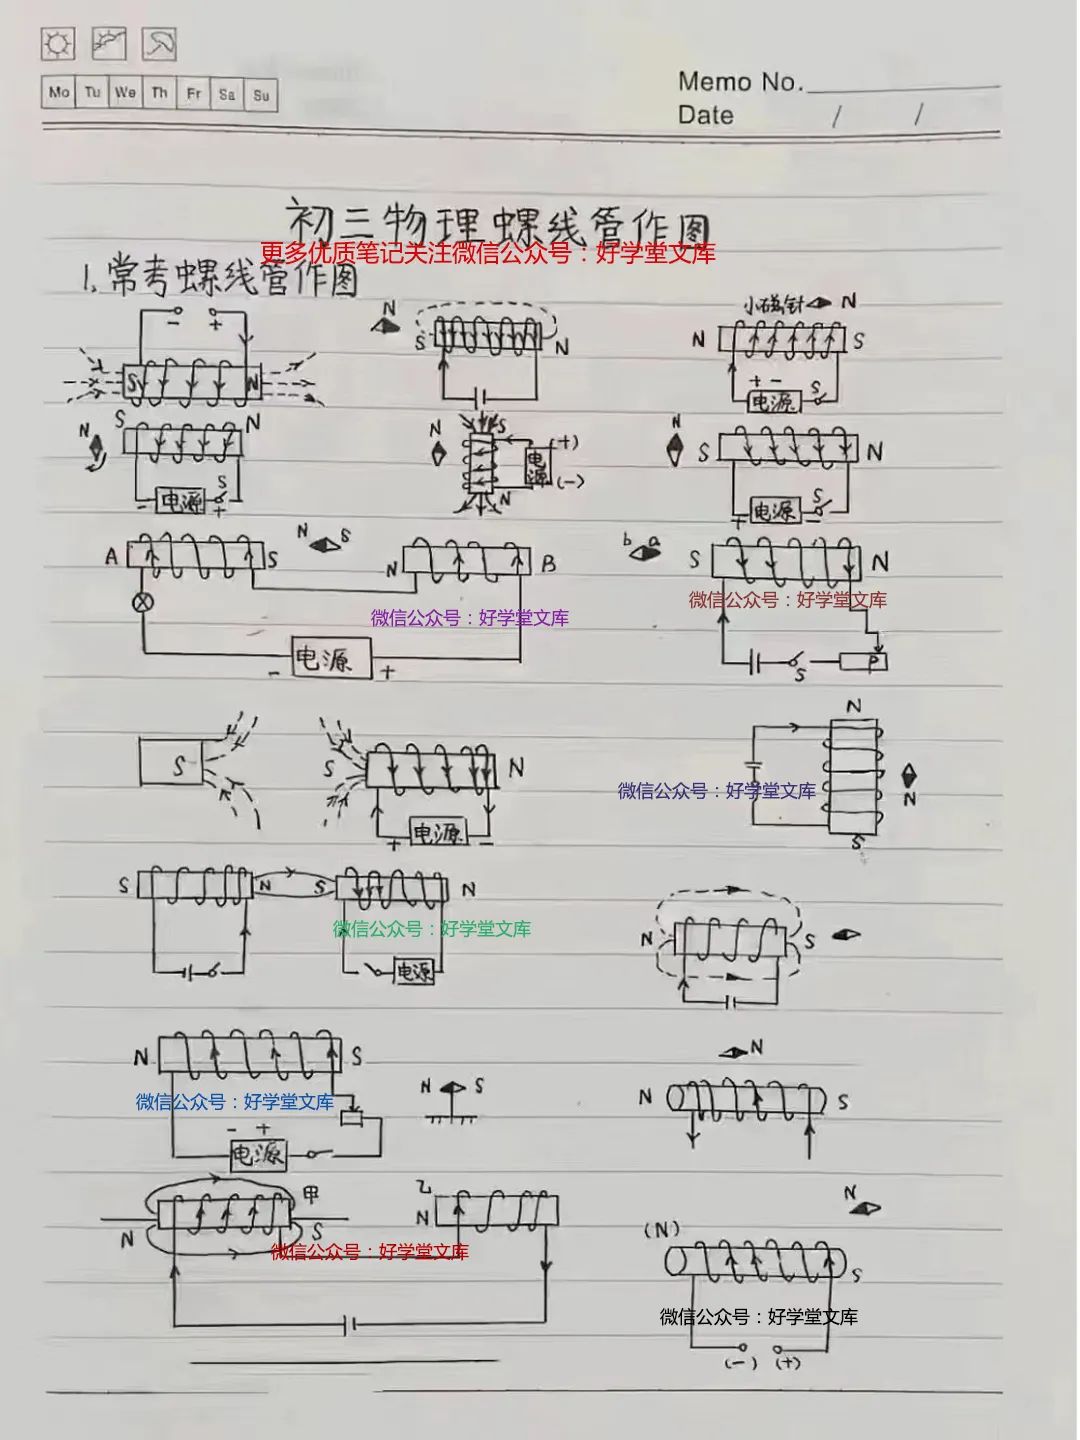 Mo Tu We Th Fr Sa Su
Memo No.
Date / /
初三物理螺线管作图
更多优质笔记关注微信公众号：好学堂文库
1.常考螺线管作图
- +
S N
N
S N
小磁针 N
N S
+ -
电源 S
S N
N
电源 S
- +
N
S
电源
(+)
(-)
N
N
S N
电源 S
+ -
A S
N S
N B
微信公众号：好学堂文库
电源
- +
b a
S N
微信公众号：好学堂文库
S P
S
S N
电源
+ -
N
微信公众号：好学堂文库
N
S
S N S N
微信公众号：好学堂文库
电源
N S
N S
微信公众号：好学堂文库
- +
电源
N S
N
N S
甲
N S
乙
N
微信公众号：好学堂文库
N
(N)
S
微信公众号：好学堂文库
(-) (+)